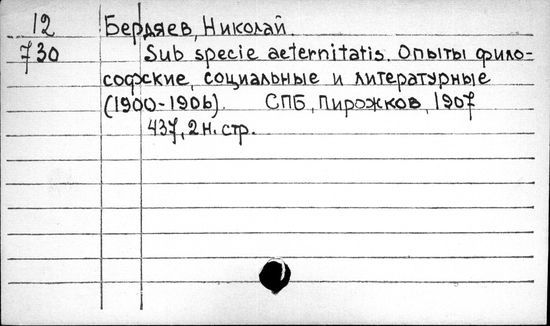 12 Бердяев, Николай.
730 Sub specie aeternitatis. Опыты фило-
софские, социальные и литературные
(1900-1906). СПБ, Пирожков, 1907
437, 2 н. стр.